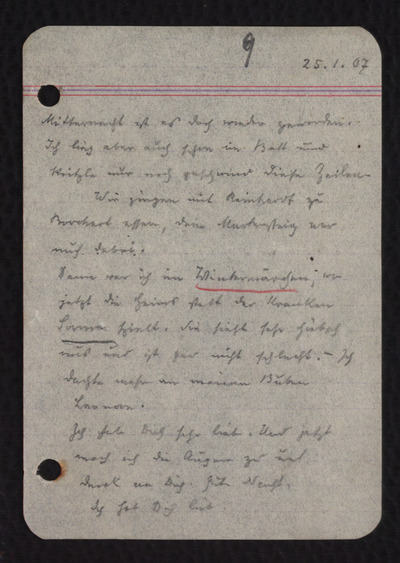 9
25.1.07
Mitternacht ist es doch wieder geworden.
Ich lieg aber auch schon im Bett und
kritzle nur noch geschwind diese Zeilen.
Wir gingen mit Reinhardt zu
Borchard essen, dem Markersteig war
auch dabei.
Dann war ich im Wintermärchen, wo
jetzt die Heims statt der kranken
Sorma spielt. Sie sieht sehr hübsch
aus und ist gar nicht schlecht. – Ich
dachte mehr an meinen Buben
Ich hab Dich sehr lieb. Und jetzt
mach ich die Augen zu und
denk an Dich. Gute Nacht.
Ich hab Dich lieb